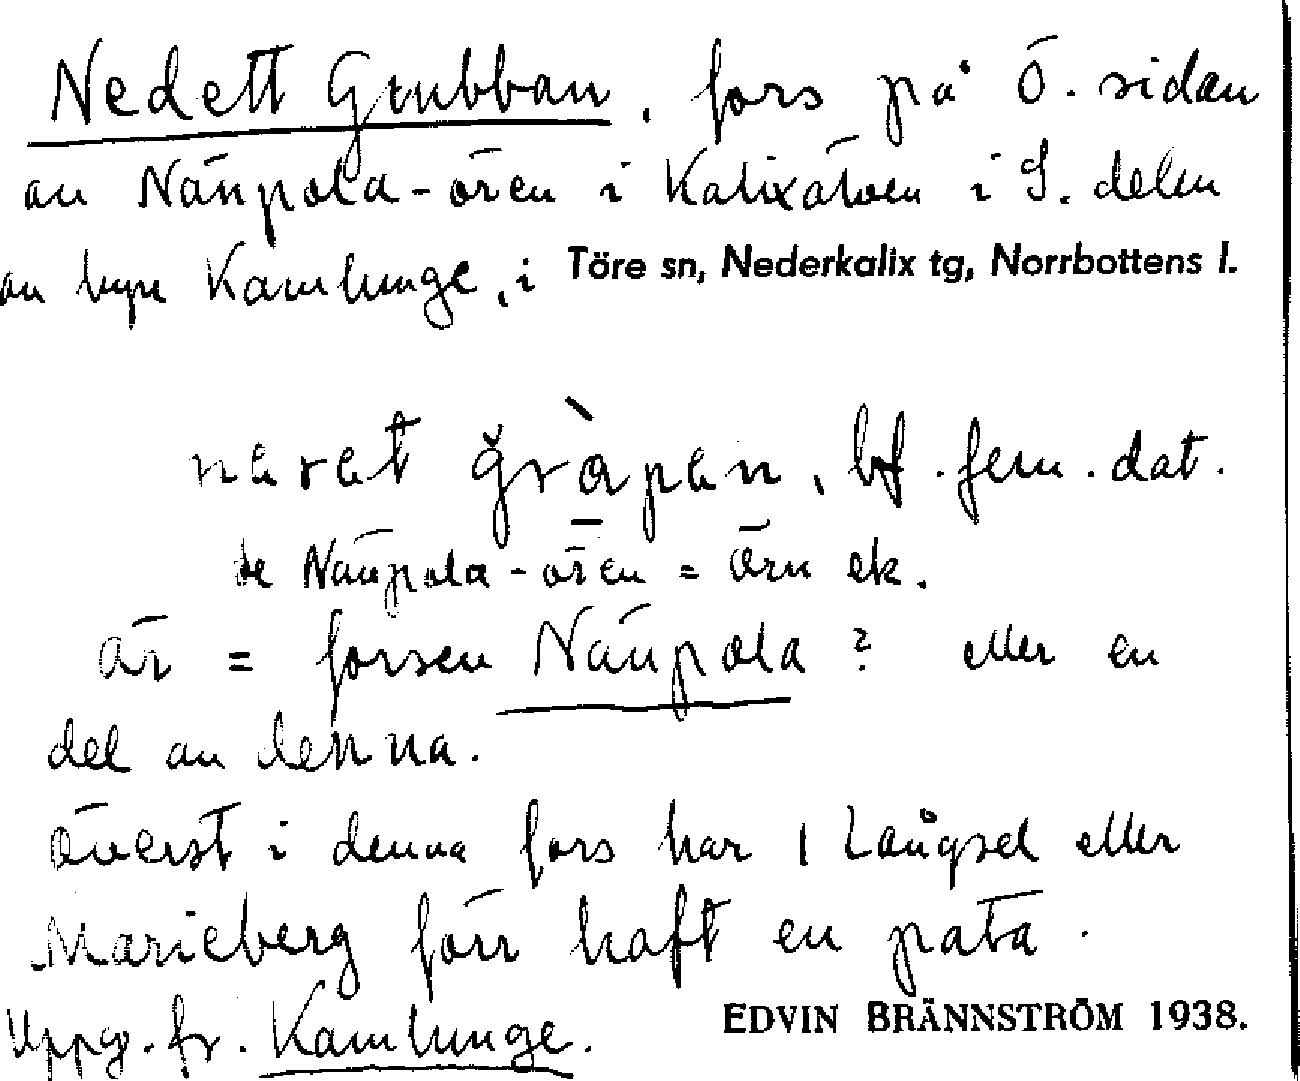 Nedett Grubban, fors på Ö. sidan
av Nänpola-ören i Kalixälven i S. delen
av byn Kamlunge, i Töre sn, Nederkalix tg, Norrbottens l.
bf. fem. dat.
Nänpola-ören = ören ek.
är = forsen Nänpola? eller en
del av denna.
överst i denna fors har 1 Långsel eller
Marieberg förr haft en pata.
Uppg. fr. Kamlunge. EDVIN BRÄNNSTRÖM 1938.